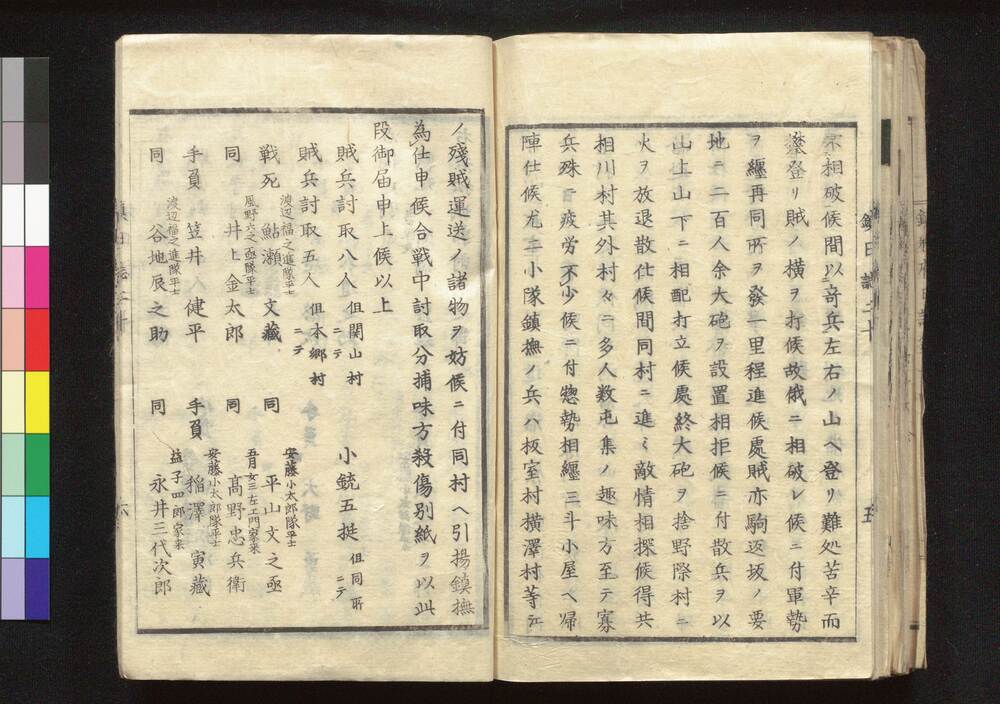 不相破候間以奇兵左右ノ山ヘ登リ難処苦辛而
登リ賊ノ横ヲ打候故俄ニ相破レ候ニ付軍勢
ヲ纒再同所ヲ發一里程進候處賊亦駒返坂ノ要
地ニ二百人余大砲ヲ設置相拒候ニ付散兵ヲ以
山上山下ニ相配打立候處終大砲ヲ捨野際村ニ
火ヲ放退散仕候間同村ニ進ミ敵情相探候得共
相川村其外村々ニ多人数屯集ノ趣味方至テ寡
兵殊ニ疲労不少候ニ付惣勢相纒三斗小屋ヘ帰
陣仕候尤二小隊鎮撫ノ兵ハ板室村横澤村等江
ノ殘賊運送ノ諸物ヲ妨候ニ付同村ヘ引揚鎮撫
為仕申候合戦中討取分捕味方殺傷別紙ヲ以此
段御届申上候以上
賊兵討取八人 但関山村ニテ 小銃五挺 但同所ニテ
賊兵討取五人 但本郷村ニテ
戦死 渡辺福之進隊平士 鮎瀬文藏 同 安藤小太郎隊平士 平山文之亟
同 風野六之亟隊平士 井上金太郎 同 五月女三左エ門家来 髙野忠兵衛
手負 笠井健平 手負 安藤小太郎隊平士 稲澤寅藏
同 渡辺福之進隊平士 谷地辰之助 同 益子四郎家来 永井三代次郎